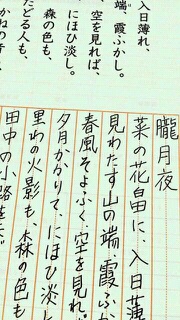 入日薄れ、
端、霞ふかし。
空を見れば、
にほひ淡し。
森の色も、
たどる人も、
かねの音
朧月夜
菜の花畠に、入日薄
見わたす山の端、霞ふか
春風そよふく、空を見れ
夕月かかりて、にほひ淡
里わの火影も、森の色も
田中の小路を